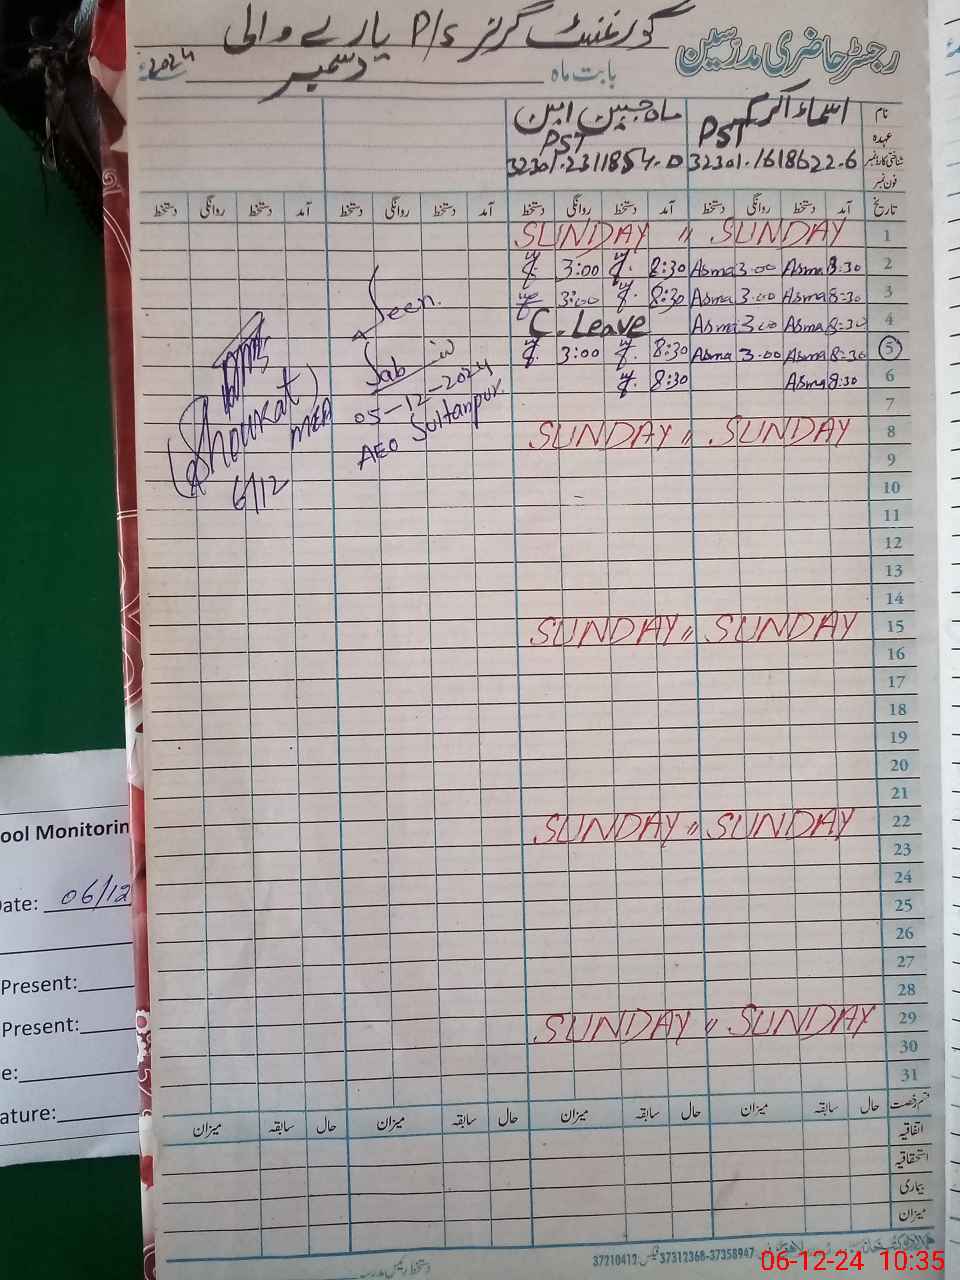 گورنمنٹ گرلز P/S یارے والی
رجسٹر حاضری مدرسین
بابت ماہ دسمبر 2024ء
نام اسماء اکرم ماہ جبین امین
عہدہ PST PST
شناختی کارڈ نمبر 32301.1618622.6 32301.2311854.0
فون نمبر
تاریخ آمد دستخط روانگی دستخط آمد دستخط روانگی دستخط آمد دستخط روانگی دستخط آمد دستخط روانگی دستخط
1 SUNDAY " SUNDAY
2 8:30 Asma 3.00 Asma 8:30 3:00
3 8:30 Asma 3.00 Asma 8:30 3:00
4 8:30 Asma 3.00 Asma C. Leave
5 8:30 Asma 3.00 Asma 8:30 3:00
6 8:30 Asma 8:30
7
8 SUNDAY " SUNDAY
9
10
11
12
13
14
15 SUNDAY " SUNDAY
16
17
18
19
20
21
22 SUNDAY " SUNDAY
23
24
25
26
27
28
29 SUNDAY " SUNDAY
30
31
Seen.
05-12-2024
AEO Sultanpur.
Shoukat
MEA
6/12
قسم رخصت حال سابقہ میزان حال سابقہ میزان حال سابقہ میزان حال سابقہ میزان
اتفاقیہ
استحقاقیہ
بیماری
میزان
دستخط رئیس مدرسہ
37312368-37358947 فیکس: 37210412
ool Monitorin
Date: 06/12
Present:
Present:
e:
ature:
06-12-24 10:35